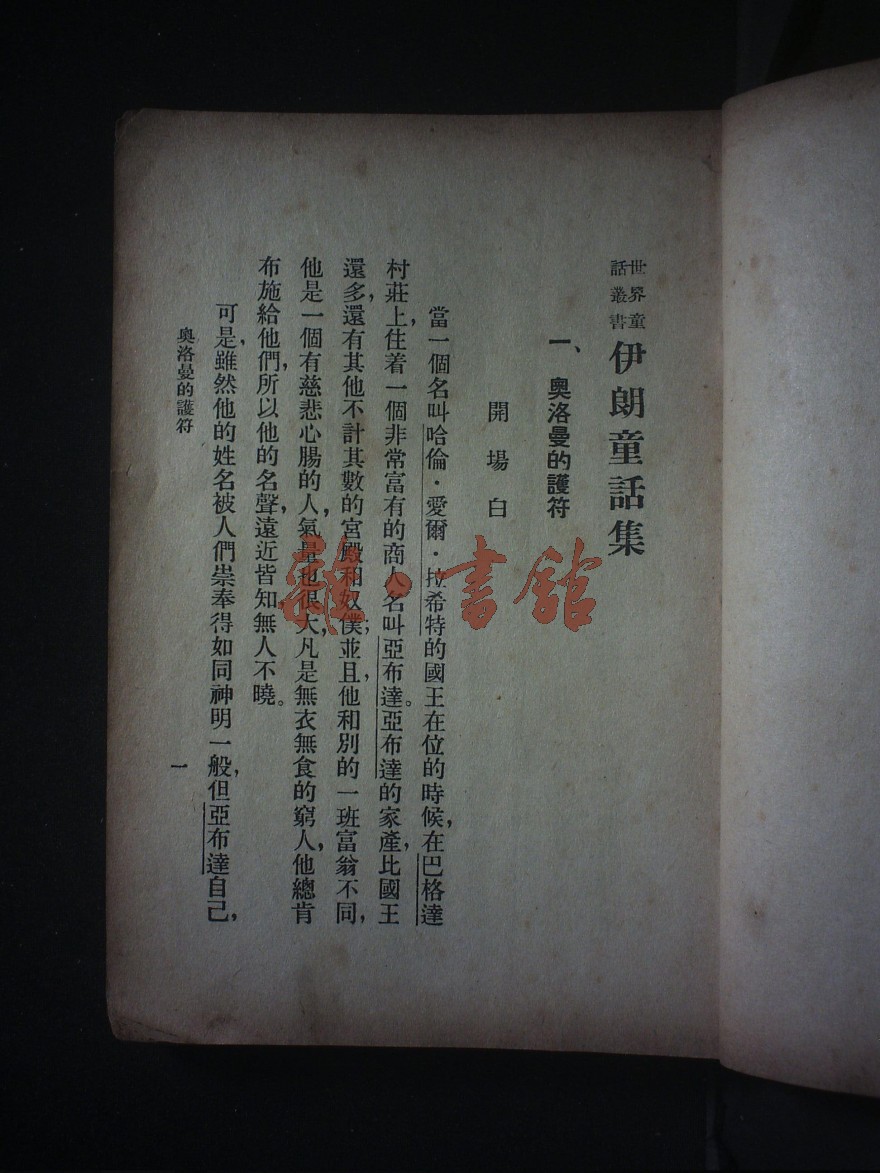 世界童
話叢書
伊朗童話集
一、奧洛曼的護符
開場白
當一個名叫哈倫·愛爾·拉希特的國王在位的時候，在巴格達
村莊上，住着一個非常富有的商人名叫亞布達。亞布達的家產，比國王
還多，還有其他不計其數的宮殿和奴僕；並且，他和別的一班富翁不同，
他是一個有慈悲心腸的人，氣量也很大，凡是無衣無食的窮人，他總肯
布施給他們，所以他的名聲，遠近皆知，無人不曉。
可是，雖然他的姓名被人們崇奉得如同神明一般，但亞布達自己，
奧洛曼的護符
一
雜·書館